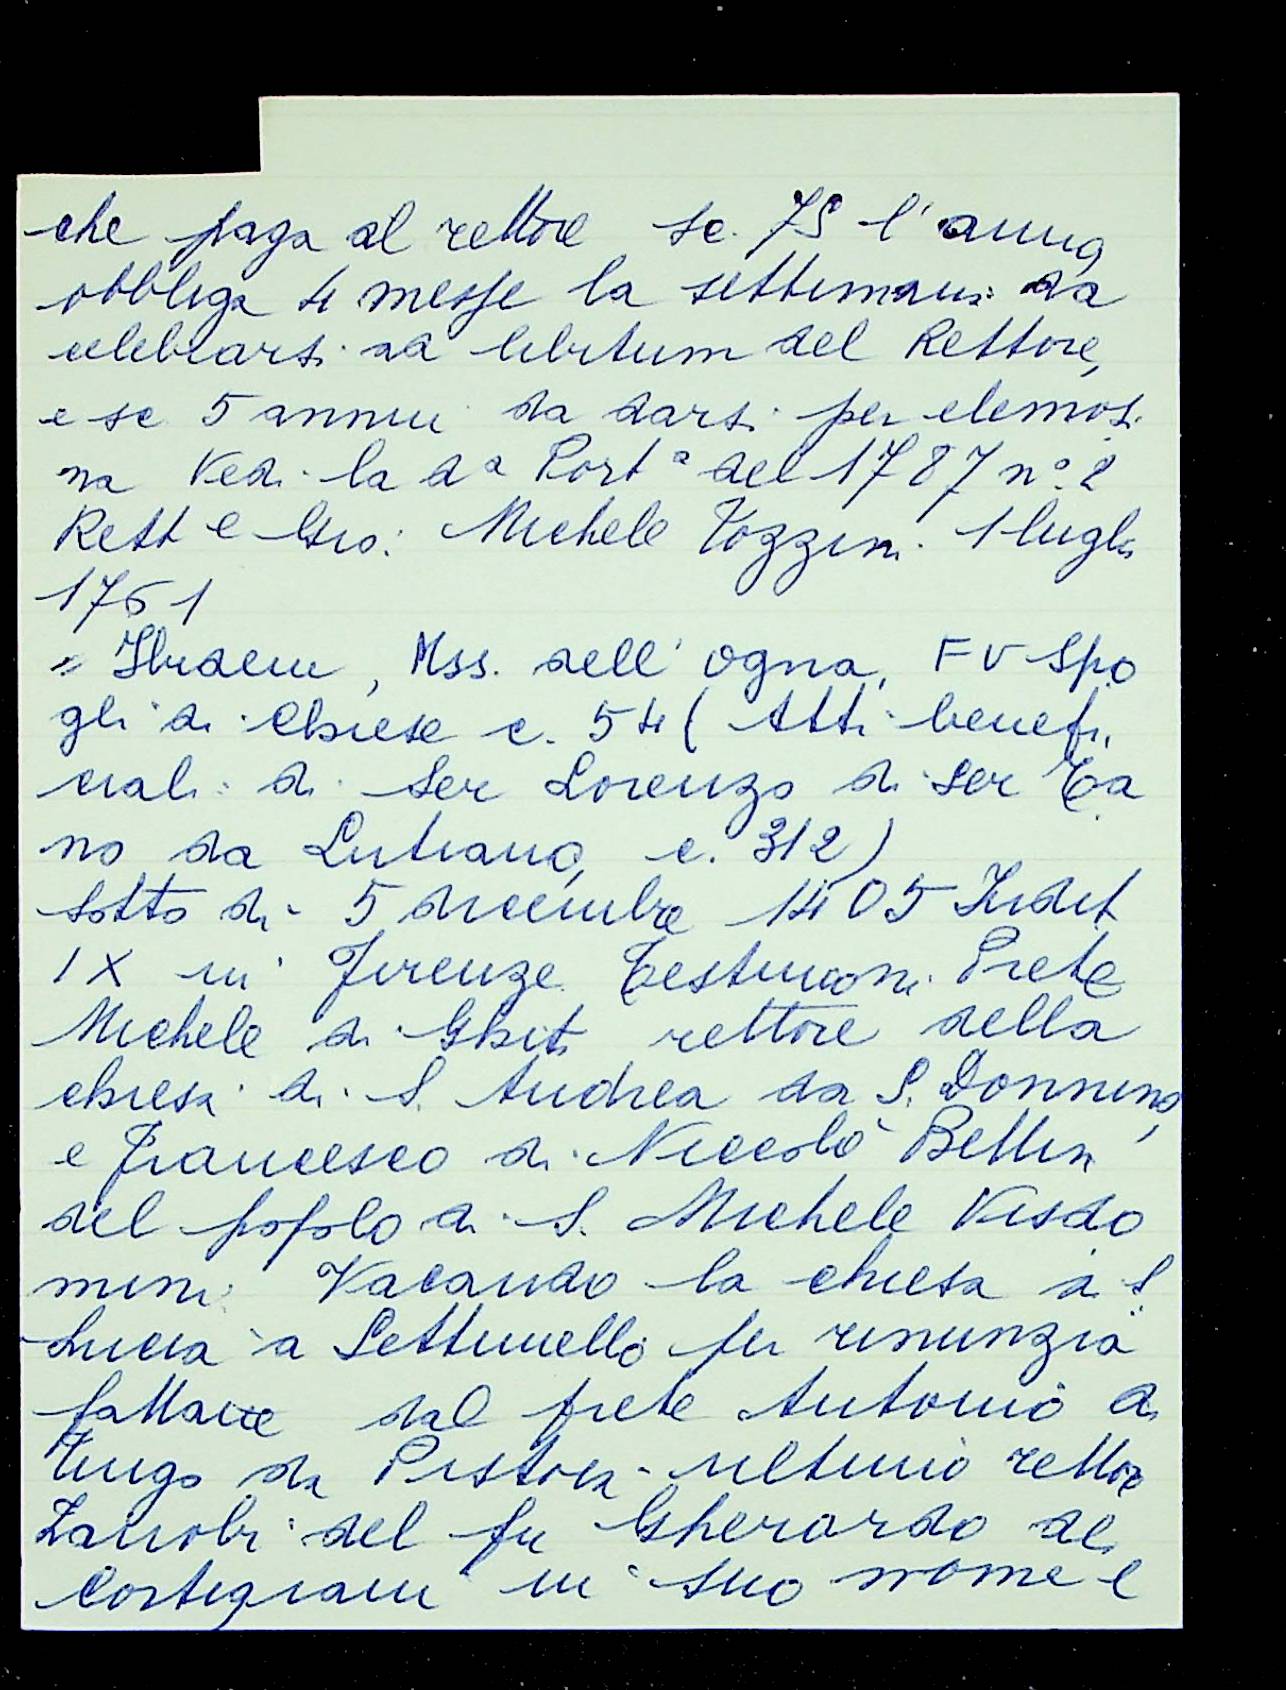 che paga al rettore sc. 75 l'anno,
obbliga 4 messe la settimana da
celebrarsi ad libitum del Rettore,
e sc 5 annui da darsi per elemosi
na Vedi la da Porta del 1787 no. 2
Rett e Gio: Michele Tozzini 1 luglio
1761
= Ibidem, Mss. dell' Ogna, FV Spo
gli di Chiese c. 54 (Atti benefi,
ciali di Ser Lorenzo di Ser Ta
no da Lutiano, c. 312)
sotto di 5 dicembre 1405 Indit
IX in Firenze Testimoni Prete
Michele di Ghiti rettore della
chiesa di S. Andrea da S. Donnino,
e Francesco di Niccolò Bellin
del popolo di S. Michele Visdo
mini Vacando la chiesa di S
Lucia a Settimello per rinunzia
fattane dal prete Antonio di
Lungo da Pistoia ultimo rettore
Zanobi del fu Gherardo dei
Cortigiani in suo nome e